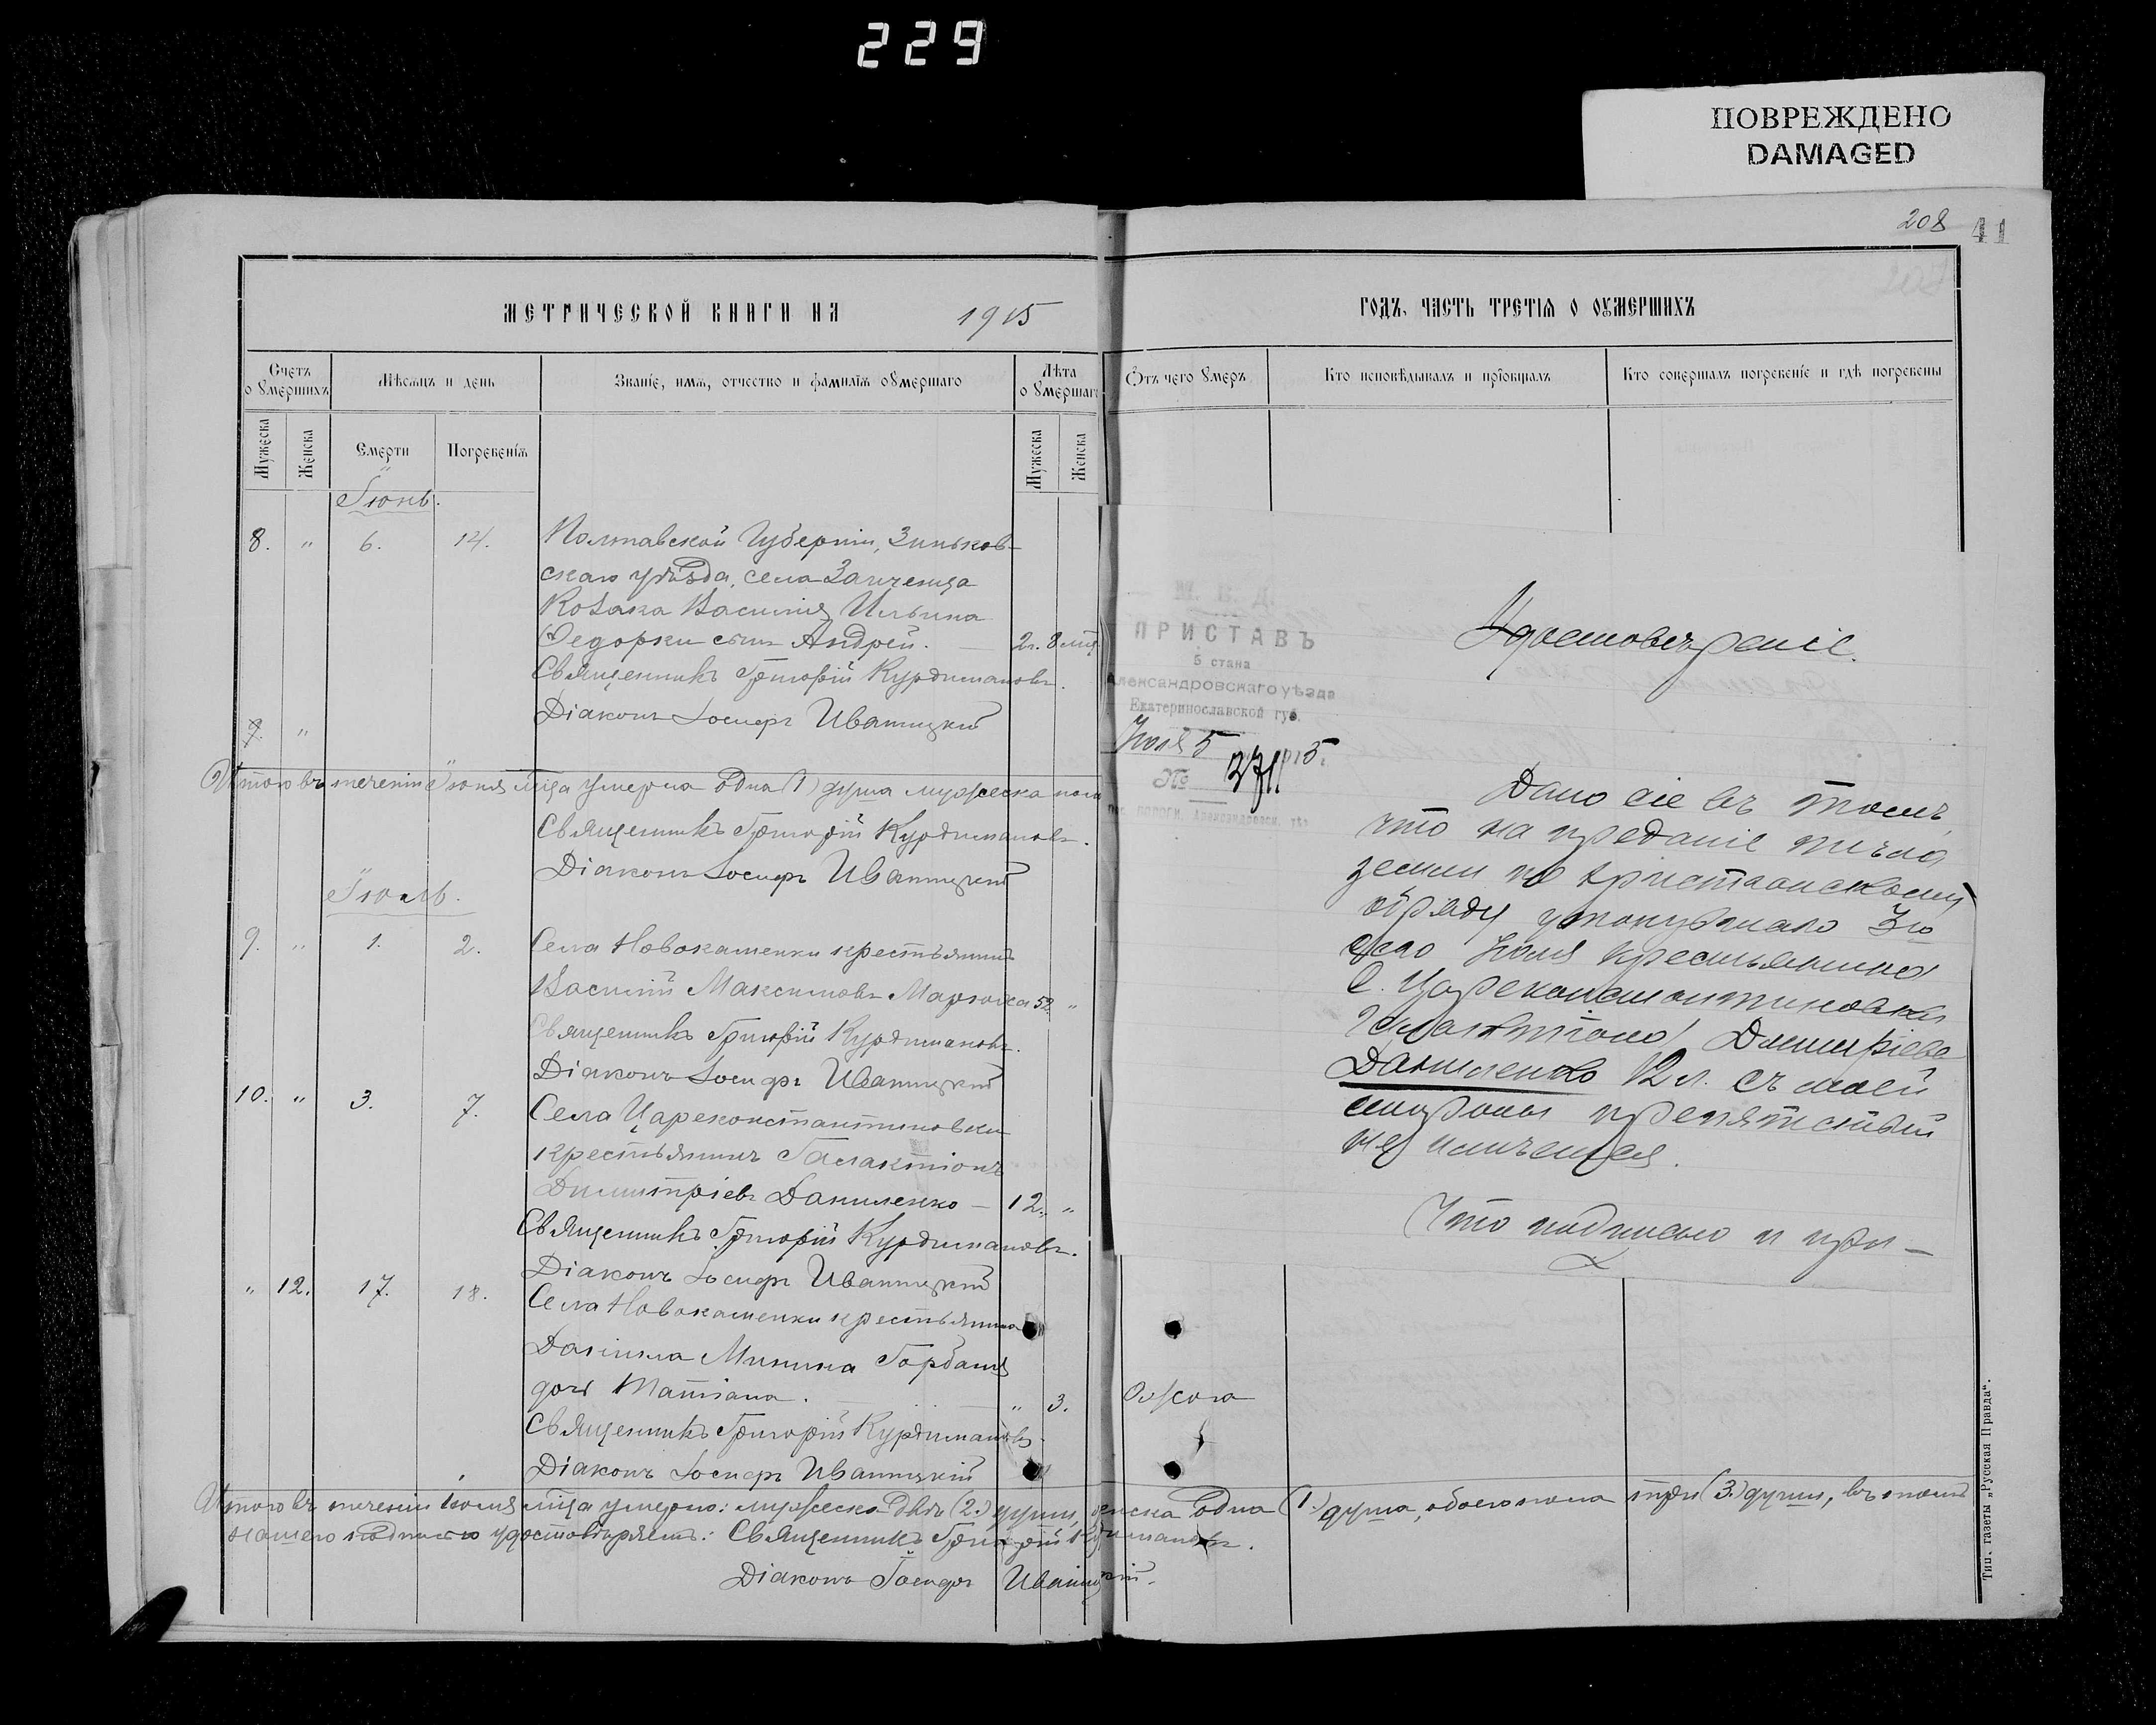 229
ПОВРЕЖДЕНО
DAMAGED
208 41
МЕТРИЧЕСКОЙ КНИГИ НА 1915
ГОДЪ, ЧАСТЬ ТРЕТІЯ О ОУМЕРШИХЪ
Счетъ о умершихъ
Мѣсяцъ и день
Званіе, имя, отчество и фамилія оумершаго
Лѣта оумершаго
Отъ чего умеръ
Кто исповѣдывалъ и пріобщалъ
Кто совершалъ погребеніе и гдѣ погребены
Мужеска
Женска
Смерти
Погребенія
Мужеска
Женска
Іюнь.
8. " 6. 14. Полтавской Губерніи, Зиньков-
скаго уѣзда, села
Козака Василія Ильина
Федорки сынъ Андрей. — 2г. 8 мц
Священникъ Григорій Курдимановъ.
Діаконъ Іосифъ Иваницкій
9. "
Итого въ теченіи Іюня мца умерла одна (1) душа мужеска пола
Священникъ Григорій Курдимановъ.
Діаконъ Іосифъ Иваницкій
Іюль.
9. " 1. 2. Села Новокаменки крестьянинъ
Василій Максимовъ 52 "
Священникъ Григорій Курдимановъ.
Діаконъ Іосифъ Иваницкій
10. " 3. 7. Села Цареконстантиновки
крестьянинъ Галактіонъ
Димитріевъ Даниленко — 12. "
Священникъ Григорій Курдимановъ.
Діаконъ Іосифъ Иваницкій
" 12. 17. 18. Села Новокаменки крестьянина
Даніила Минина Горбаня
дочь Татіана. " 3. Ожога
Священникъ Григорій Курдимановъ
Діаконъ Іосифъ Иваницкій
Итого въ теченіи Іюля мца умерло: мужеска двѣ (2.) души, женска одна (1.) душа, обоего пола три (3.) души, въ томъ
нашею подписью удостовѣряемъ: Священникъ Григорій Курдимановъ.
Діаконъ Іосифъ Иваницкій.
М. В. Д.
ПРИСТАВЪ
5 стана
Александровскаго уѣзда
Екатеринославской губ.
Іюля 5 1915 г.
№ 3711
пос. ПОЛОГИ, Александровск. уѣз.
Удостовѣреніе.
Дано сіе въ томъ,
что на преданіе тѣла
земли по христіанскому
обряду утонувшаго 3го
сего Іюля крестьянина
с. Цареконстантиновки
Галактіона Дмитріева
Даниленко 12 л. съ моей
стороны препятствій
не имѣется.
Что подписью и при-
Тип. газеты „Русская Правда“.